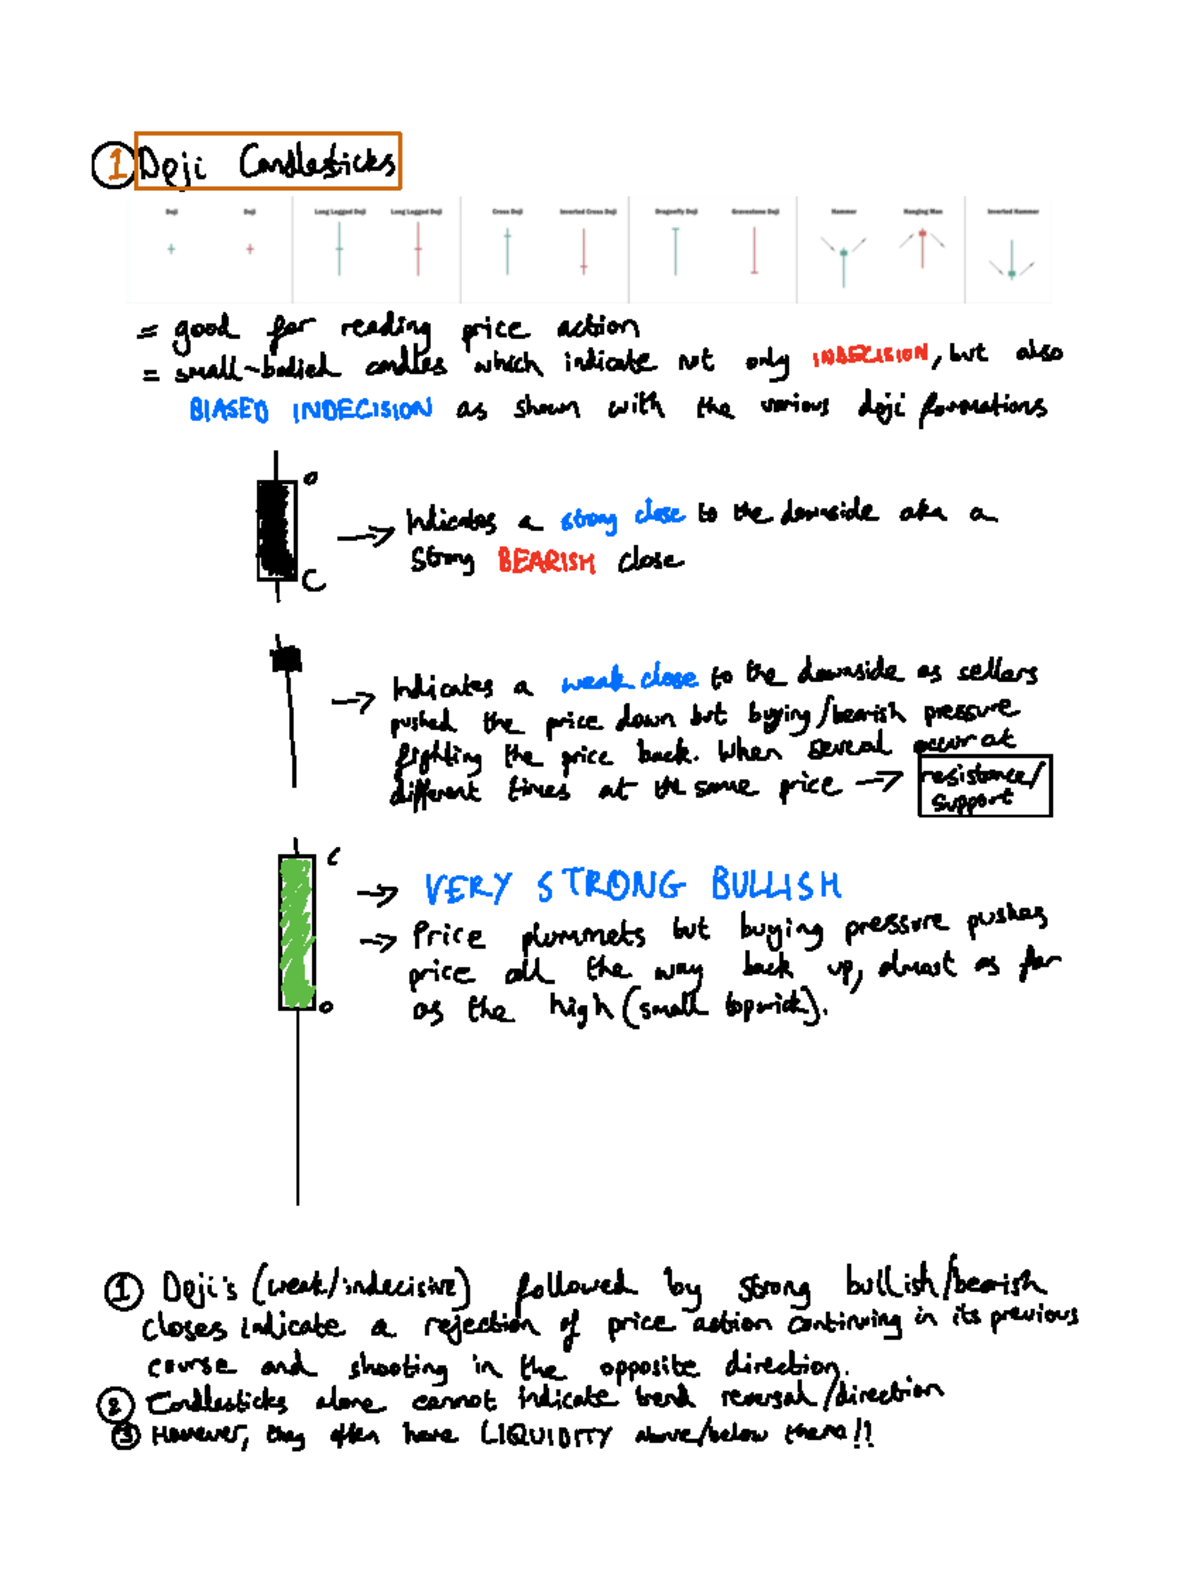 ① Doji Candlesticks
Doji Doji Long Legged Doji Long Legged Doji Cross Doji Inverted Cross Doji Dragonfly Doji Gravestone Doji Hammer Hanging Man Inverted Hammer
= good for reading price action
= small-bodied candles which indicate not only INDECISION, but also
BIASED INDECISION as shown with the various doji formations
O
Indicates a strong close to the downside aka a
strong BEARISH close
C
Indicates a weak close to the downside as sellers
pushed the price down but buying/bearish pressure
fighting the price back. When several occur at
different times at the same price → resistance/
support
C
→ VERY STRONG BULLISH
→ Price plummets but buying pressure pushes
price all the way back up, almost as far
as the high (small topwick).
O
① Doji's (weak/indecisive) followed by strong bullish/bearish
closes indicate a rejection of price action continuing in its previous
course and shooting in the opposite direction.
② Candlesticks alone cannot indicate trend reversal/direction
③ However, they often have LIQUIDITY above/below them!!